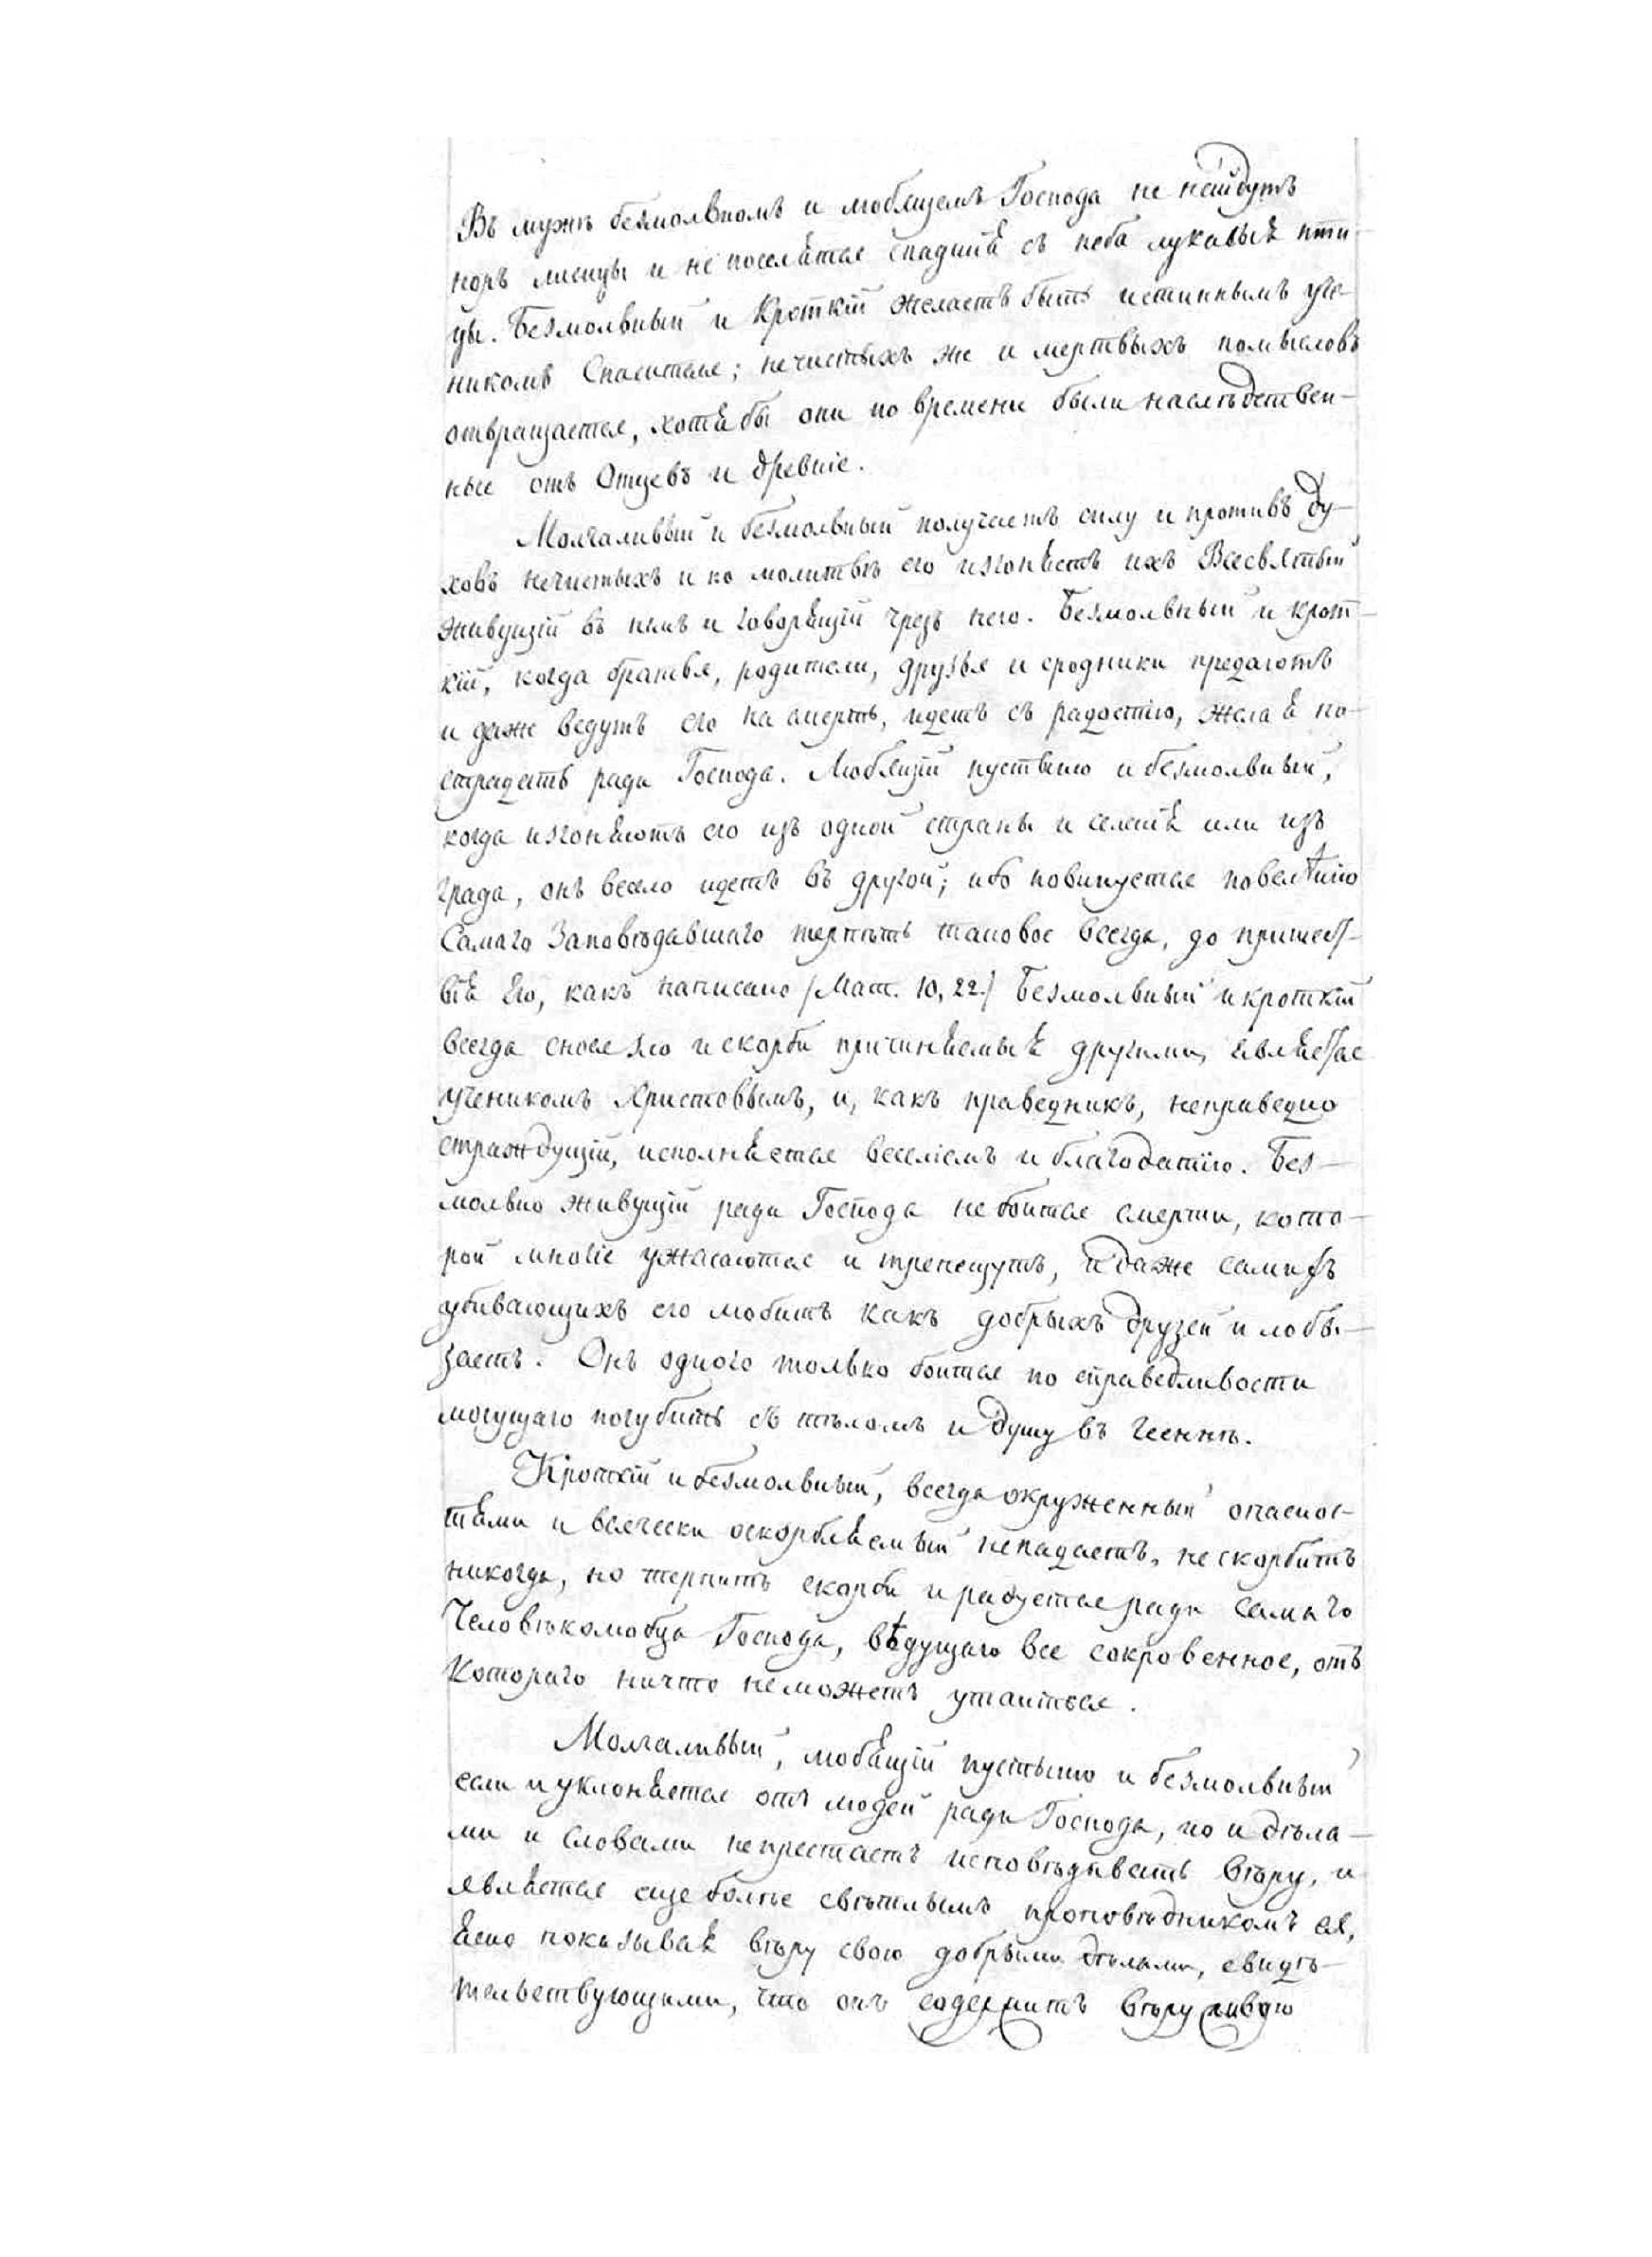 Въ мужѣ безмолвномъ и любящемъ Господа не найдутъ
норъ лисицы и не поселятся спадшія съ неба лукавыя пти-
цы. Безмолвный и Кроткій желаетъ быть истиннымъ уче-
никомъ Спасителя; нечистыхъ же и мертвыхъ помысловъ
отвращается, хотя бы они по времени были наслѣдствен-
ные отъ Отцевъ и древніе.
Молчаливый и безмолвный получаетъ силу и противъ ду-
ховъ нечистыхъ и по молитвѣ его изгоняетъ ихъ Всесвятый
живущій въ немъ и говорящій чрезъ него. Безмолвный и крот-
кій, когда братья, родители, друзья и сродники предаютъ
и даже ведутъ его на смерть, идетъ съ радостію, желая по-
страдать ради Господа. Любящій пустыню и безмолвный,
когда изгоняютъ его изъ одной страны и селенія или изъ
града, онъ весело идетъ въ другой; ибо повинуется повелѣнію
Самаго Заповѣдавшаго терпѣть таковое всегда, до пришест-
вія Его, какъ написано (Мат. 10, 22.) Безмолвный и кроткій
всегда снося зло и скорби причиняемыя другими, является
ученикомъ Христовымъ, и, какъ праведникъ, неправедно
страждущій, исполняется веселіемъ и благодатію. Без-
молвно живущій ради Господа не боится смерти, кото-
рой многіе ужасаются и трепещутъ, и даже самихъ
убивающихъ его любитъ какъ добрыхъ друзей и лобы-
заетъ. Онъ одного только боится по справедливости
могущаго погубить съ тѣломъ и душу въ гееннѣ.
Кроткій и безмолвный, всегда окруженный опаснос-
тями и всячески оскорбляемый не падаетъ, не скорбитъ
никогда, но терпитъ скорби и радуется ради самаго
Человѣколюбца Господа, вѣдущаго все сокровенное, отъ
Котораго ничто не можетъ утаиться.
Молчаливый, любящій пустыню и безмолвный
если и уклоняется отъ людей ради Господа, но и дѣла-
ми и словами не престаетъ исповѣдывать вѣру, и
является еще болѣе свѣтлымъ проповѣдникомъ ея,
ясно показывая вѣру свою добрыми дѣлами, свидѣ-
тельствующими, что онъ содержитъ вѣру живую